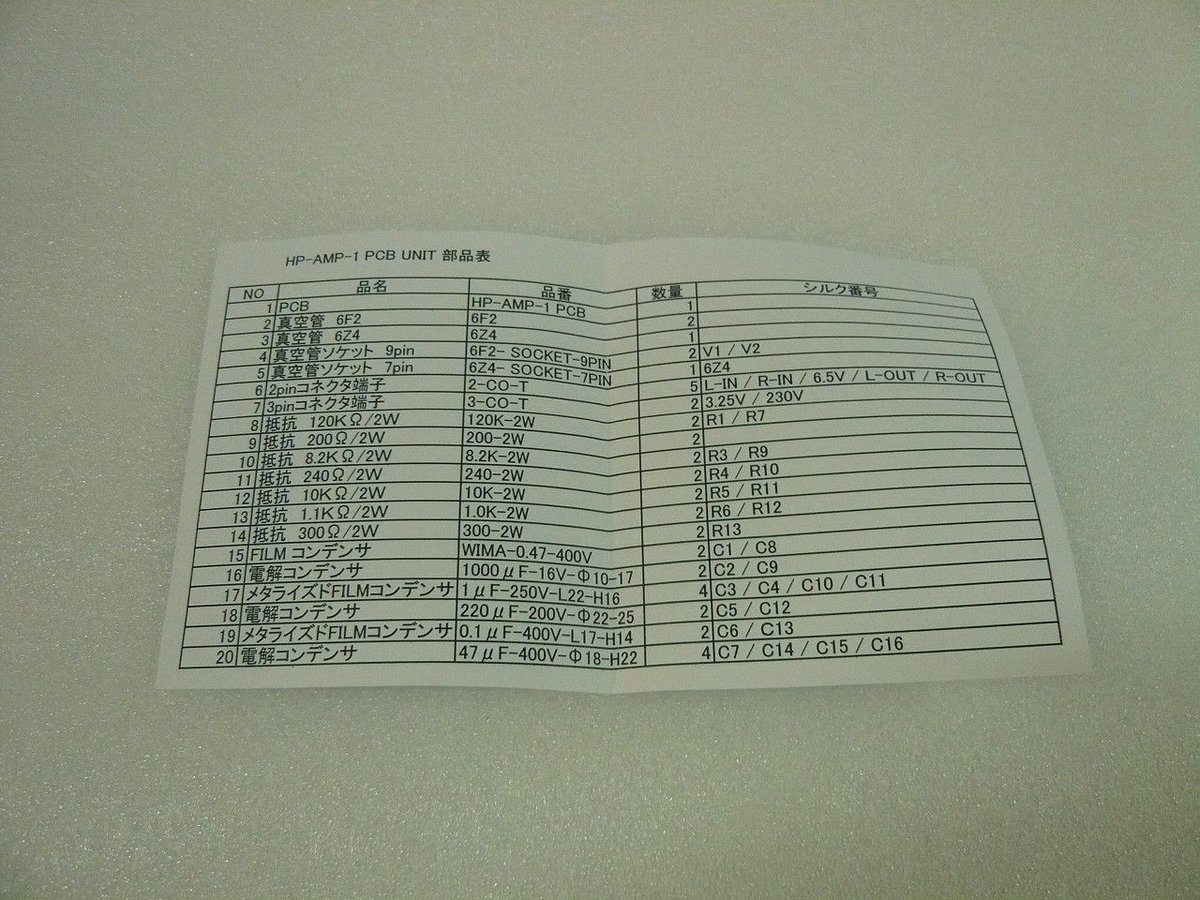 HP-AMP-1 PCB UNIT 部品表
NO 品名 品番 数量 シルク番号
1 PCB HP-AMP-1 PCB 1
2 真空管 6F2 6F2 2
3 真空管 6Z4 6Z4 1
4 真空管ソケット 9pin 6F2- SOCKET-9PIN 2 V1 / V2
5 真空管ソケット 7pin 6Z4- SOCKET-7PIN 1 6Z4
6 2pinコネクタ端子 2-CO-T 5 L-IN / R-IN / 6.5V / L-OUT / R-OUT
7 3pinコネクタ端子 3-CO-T 2 3.25V / 230V
8 抵抗 120KΩ/2W 120K-2W 2 R1 / R7
9 抵抗 200Ω/2W 200-2W 2
10 抵抗 8.2KΩ/2W 8.2K-2W 2 R3 / R9
11 抵抗 240Ω/2W 240-2W 2 R4 / R10
12 抵抗 10KΩ/2W 10K-2W 2 R5 / R11
13 抵抗 1.1KΩ/2W 1.0K-2W 2 R6 / R12
14 抵抗 300Ω/2W 300-2W 2 R13
15 FILM コンデンサ WIMA-0.47-400V 2 C1 / C8
16 電解コンデンサ 1000μF-16V-Φ10-17 2 C2 / C9
17 メタライズドFILMコンデンサ 1μF-250V-L22-H16 4 C3 / C4 / C10 / C11
18 電解コンデンサ 220μF-200V-Φ22-25 2 C5 / C12
19 メタライズドFILMコンデンサ 0.1μF-400V-L17-H14 2 C6 / C13
20 電解コンデンサ 47μF-400V-Φ18-H22 4 C7 / C14 / C15 / C16